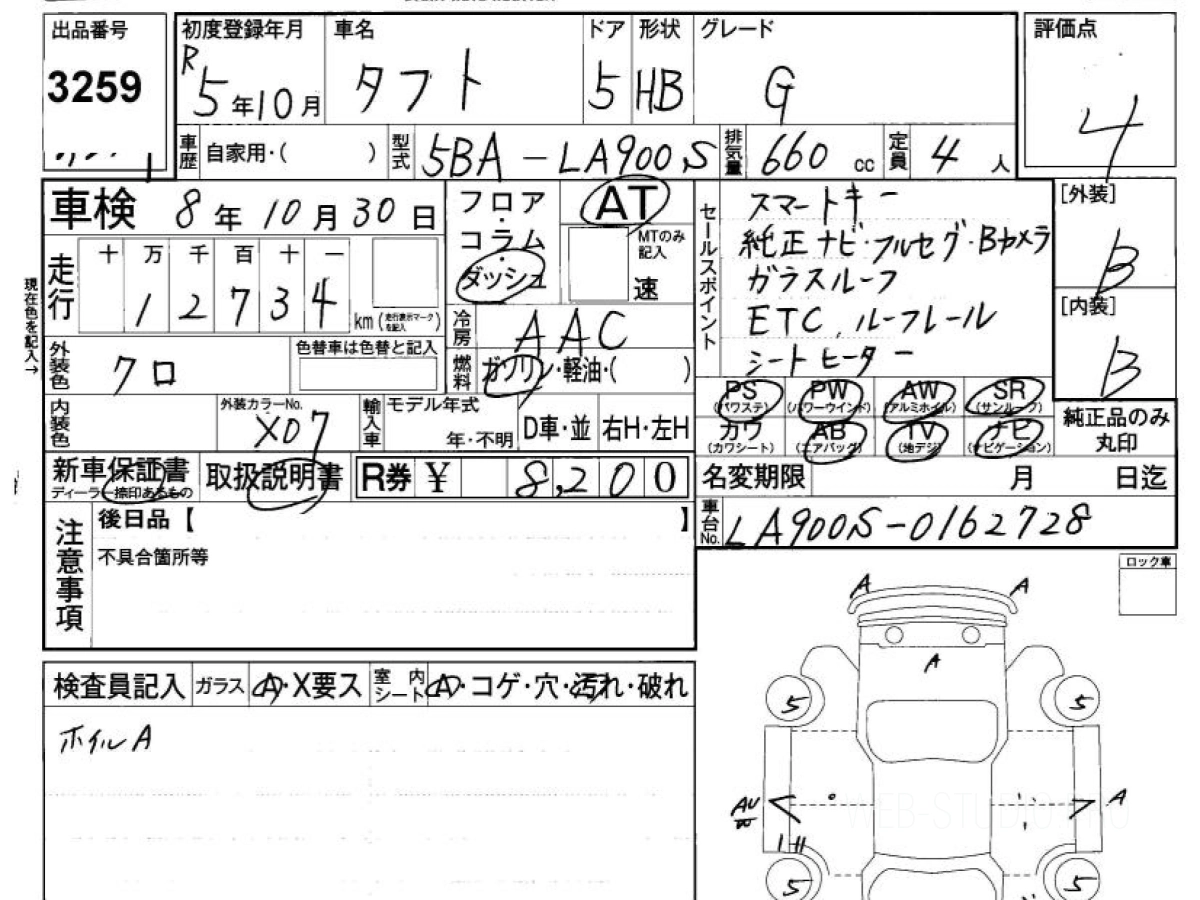 出品番号
3259
初度登録年月
R5年10月
車名
タフト
ドア
5
形状
HB
グレード
G
評価点
4
車歴
自家用・( )
型式
5BA-LA900S
排気量
660cc
定員
4人
車検
8年10月30日
フロア・コラム・ダッシュ
AT
MTのみ記入
速
セールスポイント
スマートキー
純正ナビ・フルセグ・Bカメラ
ガラスルーフ
ETC、ルーフレール
シートヒーター
[外装]
B
[内装]
B
現在色を記入→
走行
十 万 千 百 十 一
1 2 7 3 4
km(走行表示マークを記入)
冷房
AAC
燃料
ガソリン・軽油・( )
外装色
クロ
色替車は色替と記入
内装色
外装カラーNo.
X07
輸入車
モデル年式
年・不明
D車・並
右H・左H
PS
(パワステ)
PW
(パワーウインド)
AW
(アルミホイル)
SR
(サンルーフ)
カワ
(カワシート)
AB
(エアバッグ)
TV
(地デジ)
ナビ
(ナビゲーション)
純正品のみ
丸印
新車保証書
ディーラー捺印あるもの
取扱説明書
R券
¥8,200
名変期限
月
日迄
車台No.
LA900S-0162728
注意事項
後日品【 】
不具合箇所等
ロック車
検査員記入
ガラス
A・X要ス
室内シート
A・コゲ・穴・汚れ・破れ
ホイルA
A
A
A
5
5
AU
A
5
5
WEB-STUDIO.PRO